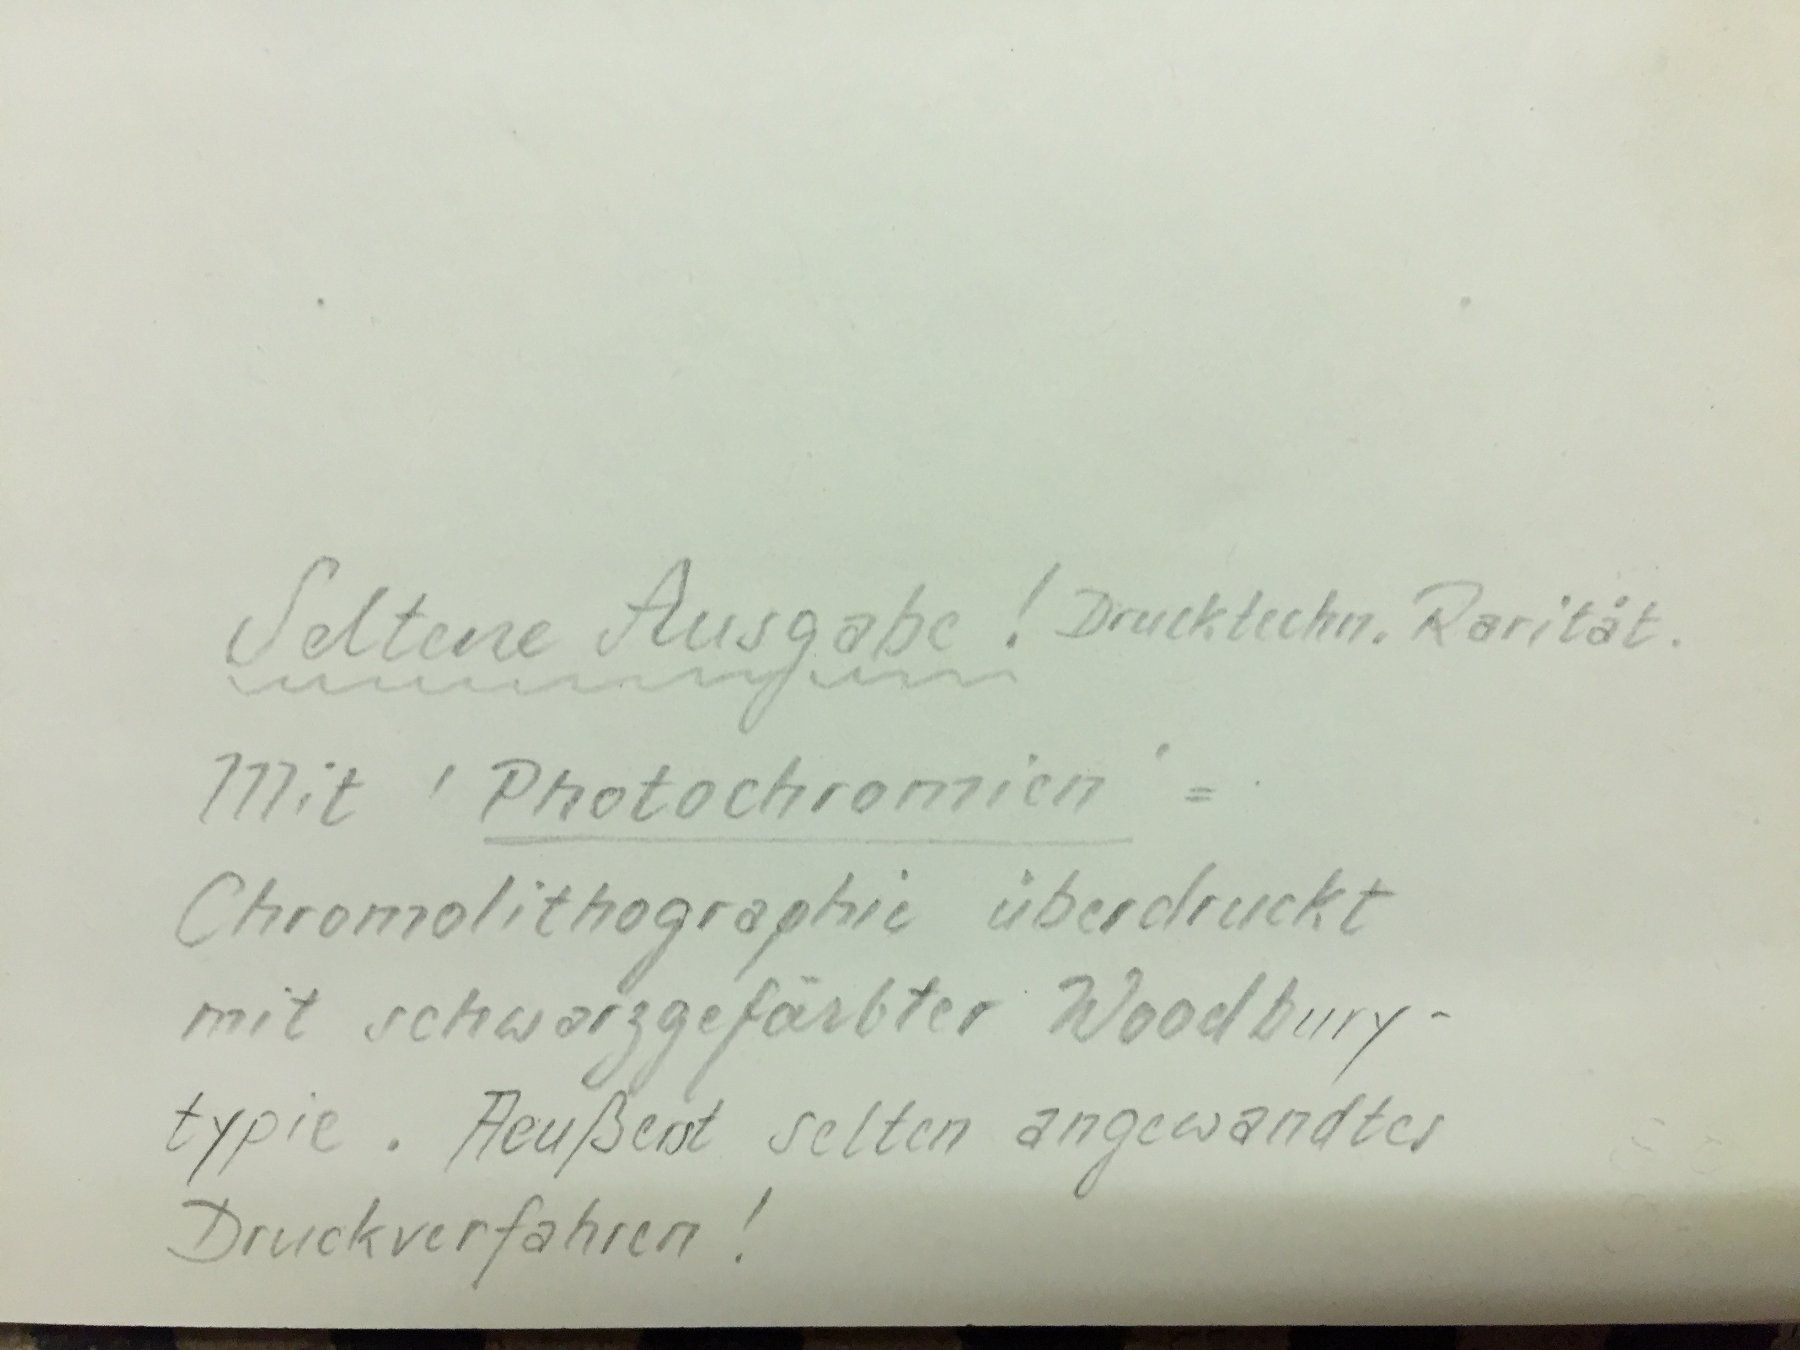 Seltene Ausgabe! Drucktechn. Rarität.
Mit 'Photochromien' =
Chromolithographie überdruckt
mit schwarzgefärbter Woodbury-
typie. Aeußerst selten angewandtes
Druckverfahren!